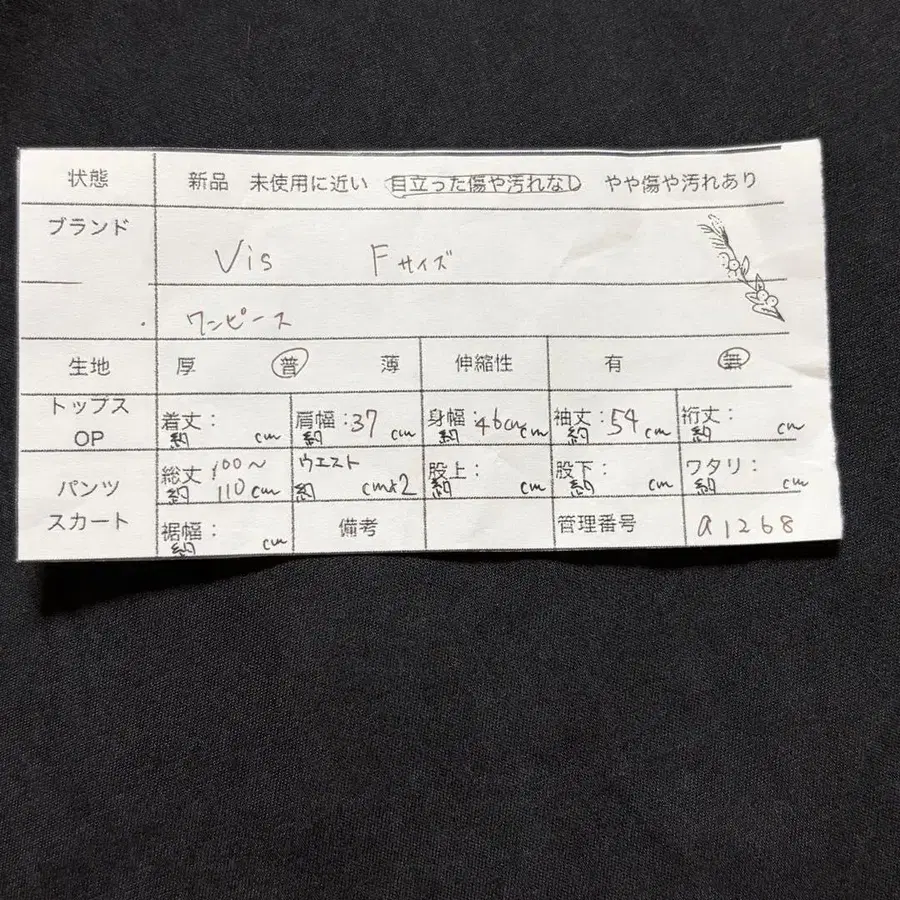 状態 新品 未使用に近い 目立った傷や汚れなし やや傷や汚れあり
ブランド Vis Fサイズ
ワンピース
生地 厚 普 薄 伸縮性 有 無
トップス OP 着丈: 約 cm 肩幅:37 約 cm 身幅:46cm 約 cm 袖丈:54 約 cm 裄丈: 約 cm
パンツ スカート 総丈 100〜 約 110cm ウエスト 約 cm×2 股上: 約 cm 股下: 約 cm ワタリ: 約 cm
裾幅: 約 cm 備考 管理番号 a1268